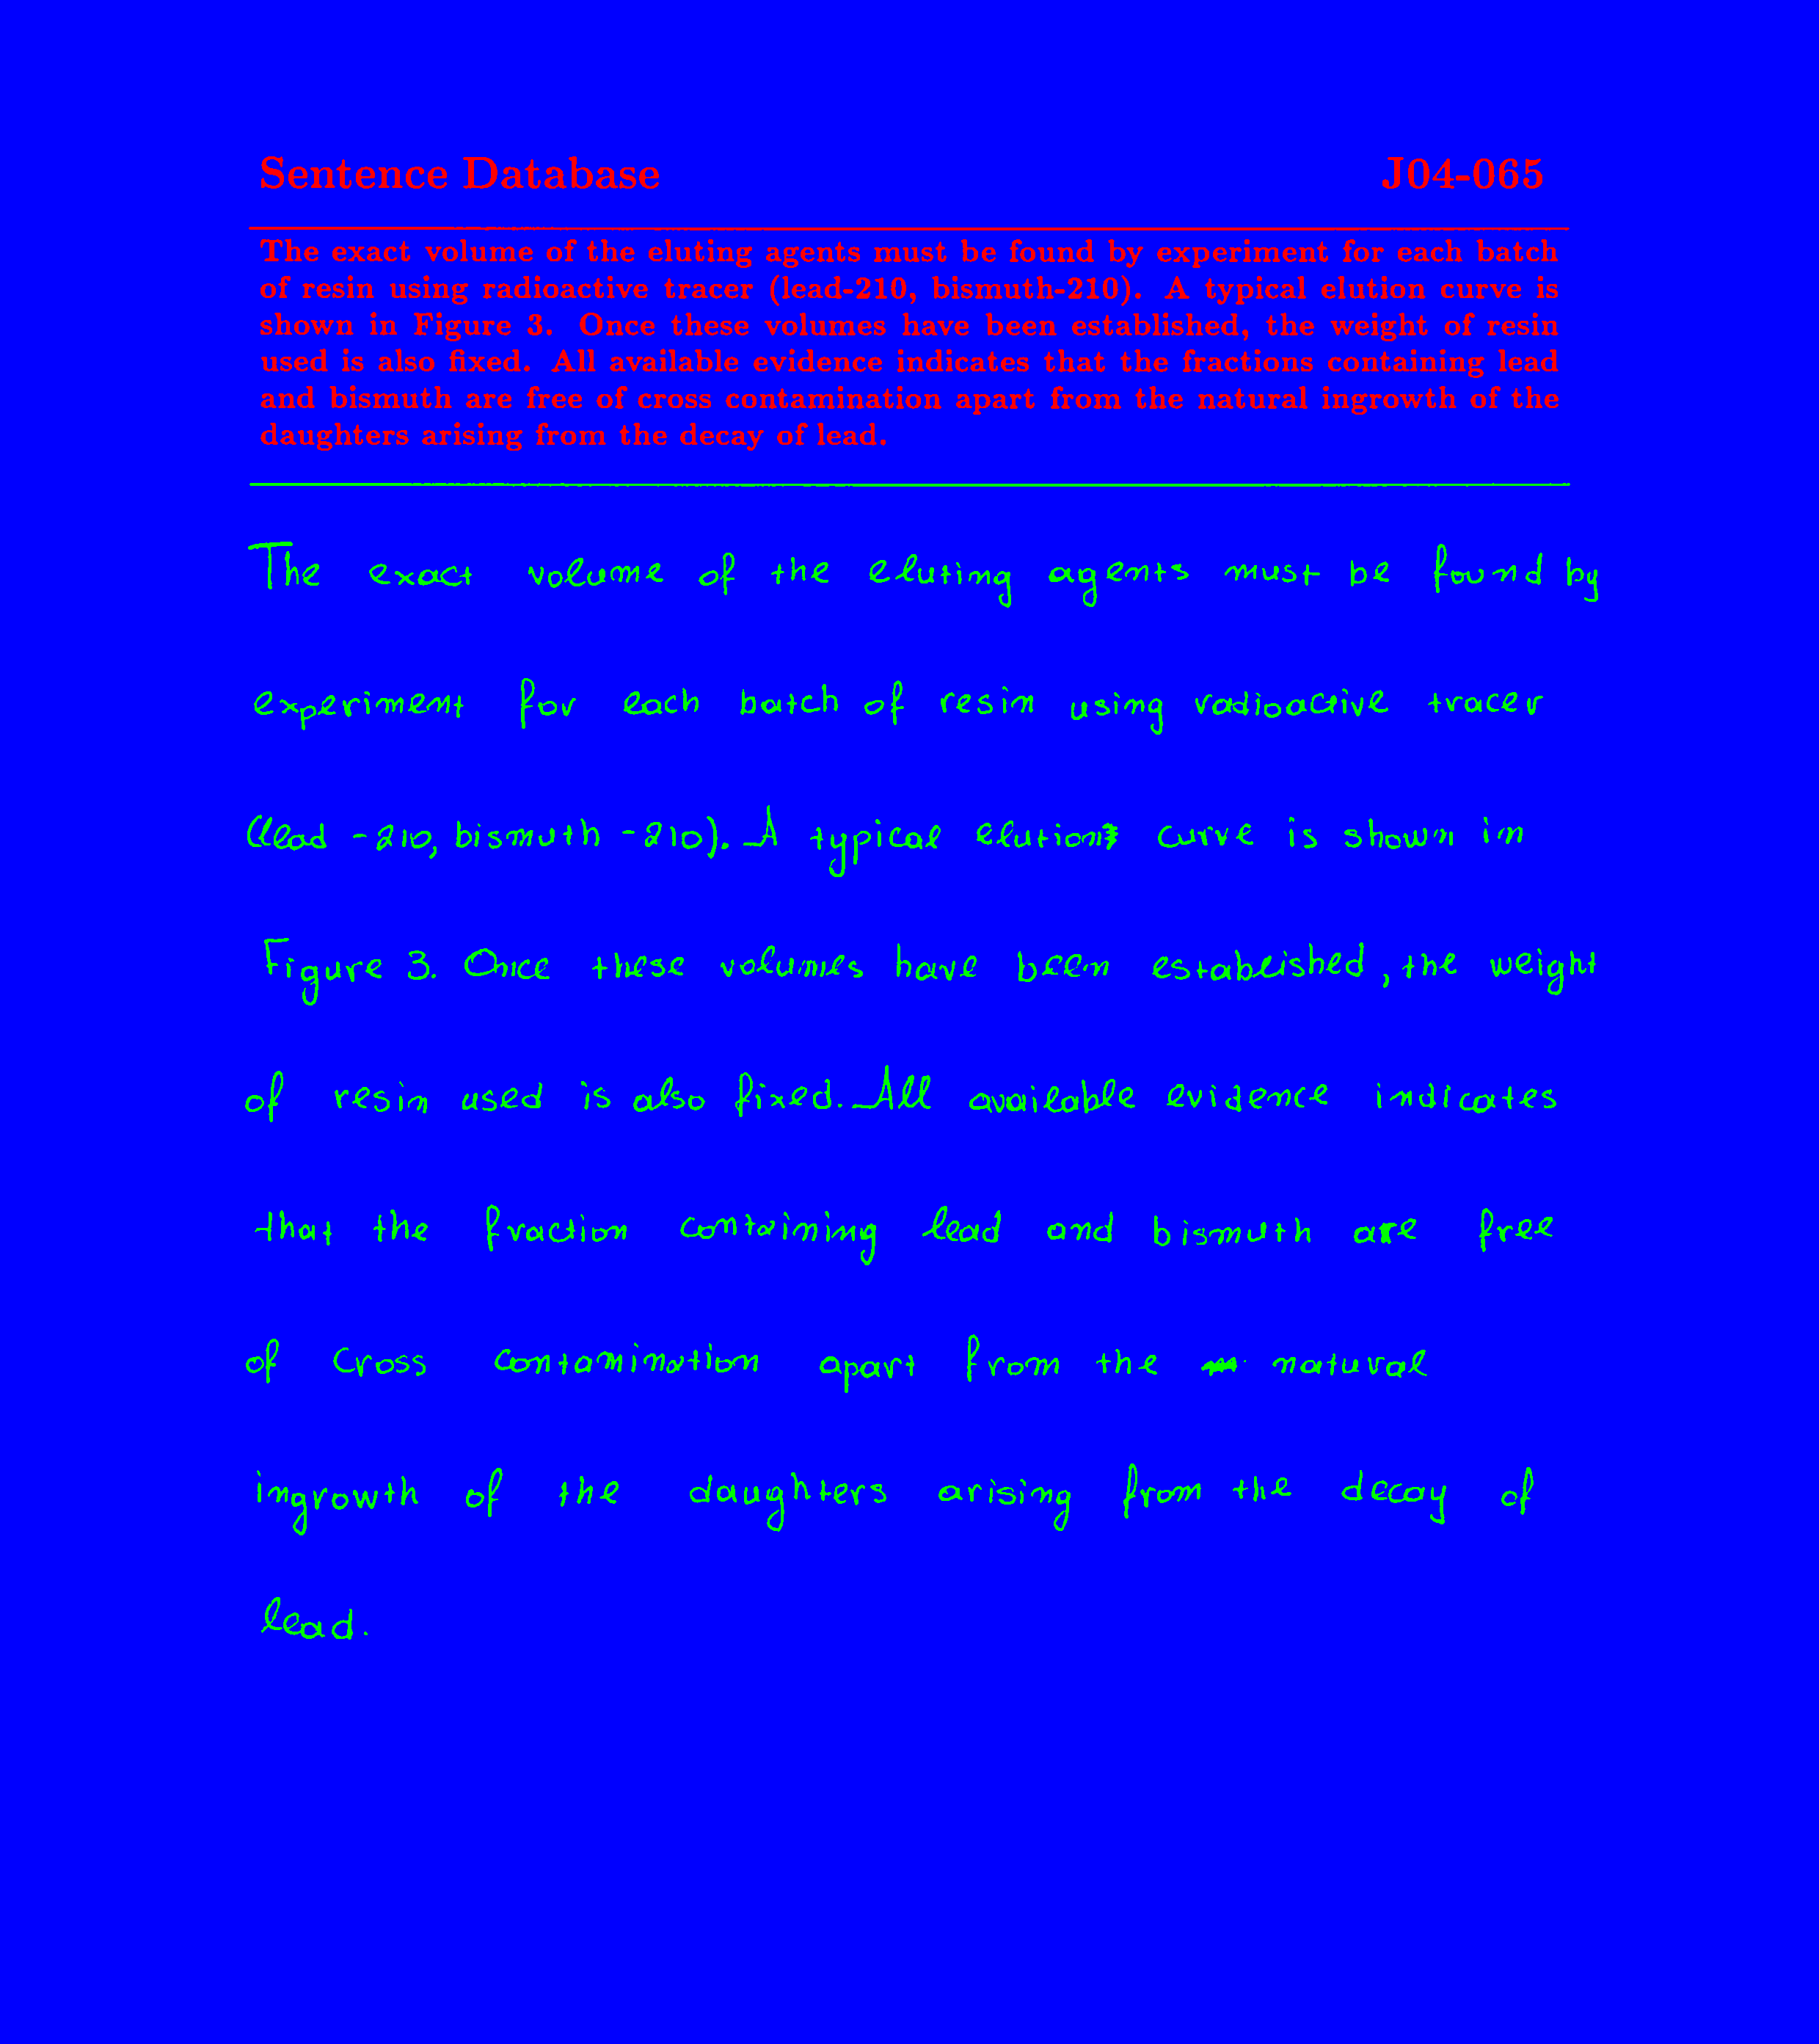 Sentence Database J04-065
The exact volume of the eluting agents must be found by experiment for each batch
of resin using radioactive tracer (lead-210, bismuth-210). A typical elution curve is
shown in Figure 3. Once these volumes have been established, the weight of resin
used is also fixed. All available evidence indicates that the fractions containing lead
and bismuth are free of cross contamination apart from the natural ingrowth of the
daughters arising from the decay of lead.
The exact volume of the eluting agents must be found by
experiment for each batch of resin using radioactive tracer
(lead -210, bismuth -210). A typical elution curve is shown in
Figure 3. Once these volumes have been established, the weight
of resin used is also fixed. All available evidence indicates
that the fraction containing lead and bismuth are free
of cross contamination apart from the natural
ingrowth of the daughters arising from the decay of
lead.